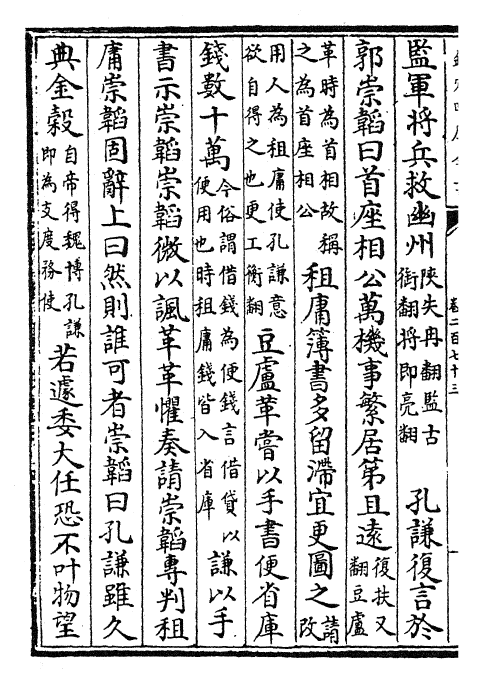 卷二百七十三
監軍將兵救幽州陜失冉翻監古銜翻將即亮翻孔謙復言於
郭崇韜曰首座相公萬機事繁居第且遠復扶又翻豆盧
革時為首相故稱之為首座相公租庸簿書多留滯宜更圖之請改
用人為租庸使孔謙意欲自得之也更工衡翻豆盧革嘗以手書便省庫
錢數十萬今俗謂借錢為便錢言借貸以便用也時租庸錢皆入省庫謙以手
書示崇韜崇韜微以諷革革懼奏請崇韜專判租
庸崇韜固辭上曰然則誰可者崇韜曰孔謙雖久
典金榖自帝得魏博孔謙即為支度務使若遽委大任恐不叶物望